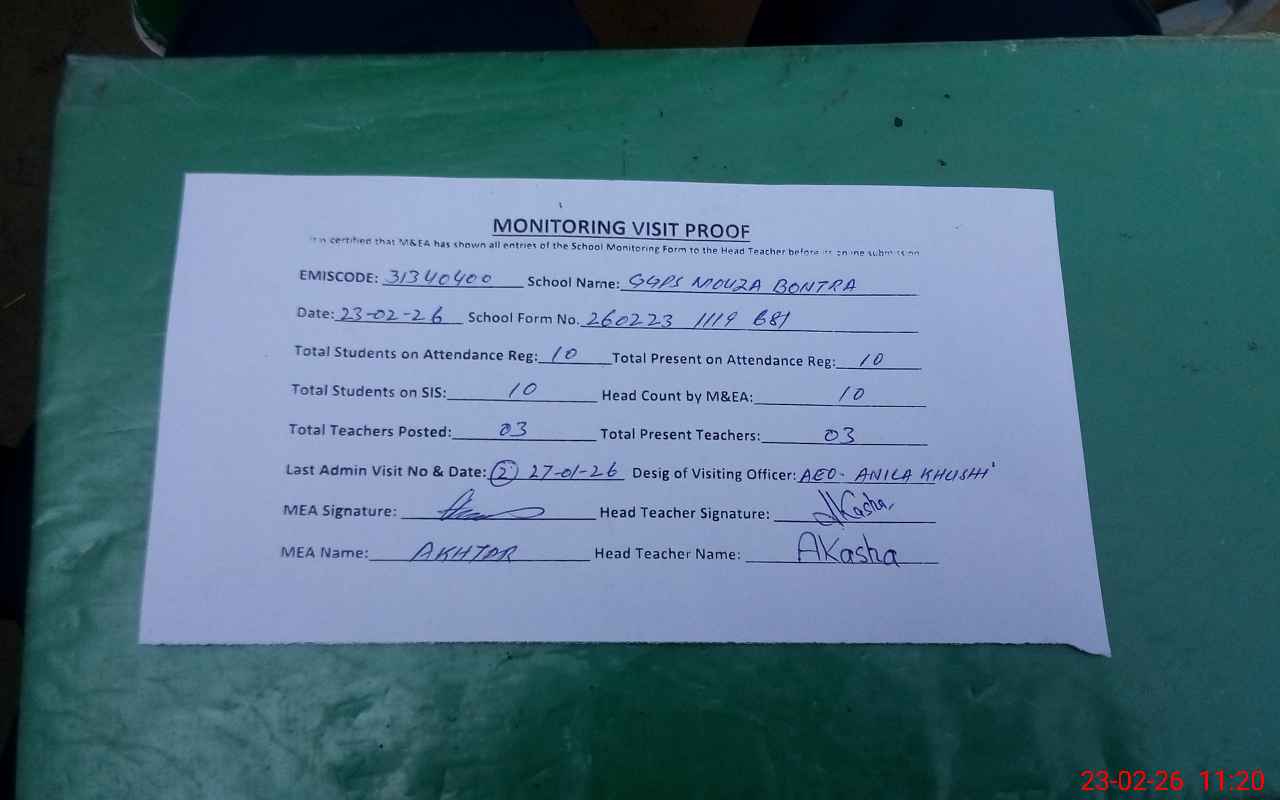 MONITORING VISIT PROOF
It is certified that M&EA has shown all entries of the School Monitoring Form to the Head Teacher before its online submission
EMISCODE: 31340400 School Name: GGPS MOUZA BONTRA
Date: 23-02-26 School Form No. 260223 1119 681
Total Students on Attendance Reg: 10 Total Present on Attendance Reg: 10
Total Students on SIS: 10 Head Count by M&EA: 10
Total Teachers Posted: 03 Total Present Teachers: 03
Last Admin Visit No & Date: (2) 27-01-26 Desig of Visiting Officer: AEO- ANILA KHUSHI
MEA Signature: Head Teacher Signature: AKasha
MEA Name: AKHTAR Head Teacher Name: AKasha
23-02-26 11:20